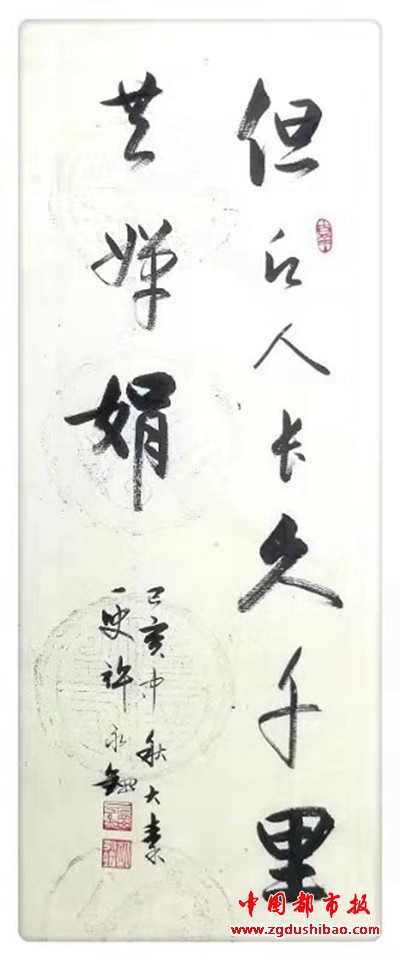 但愿人长久千里
共婵娟
己亥中秋大素
一叟许永
中国都市报
www.zgdushibao.com